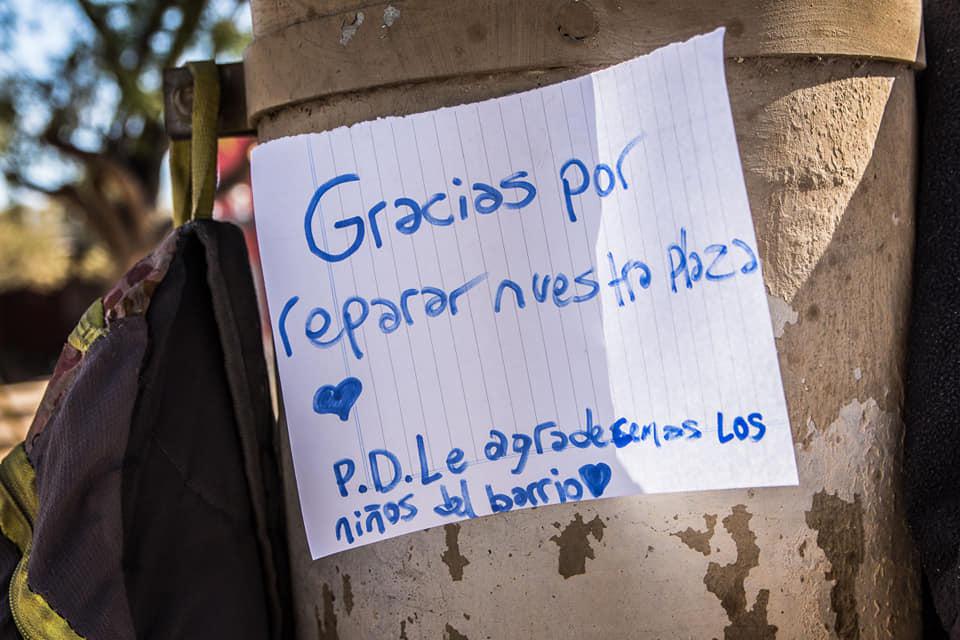 Gracias por
reparar nuestra plaza
P.D. Le agradecemos Los
niños del barrio